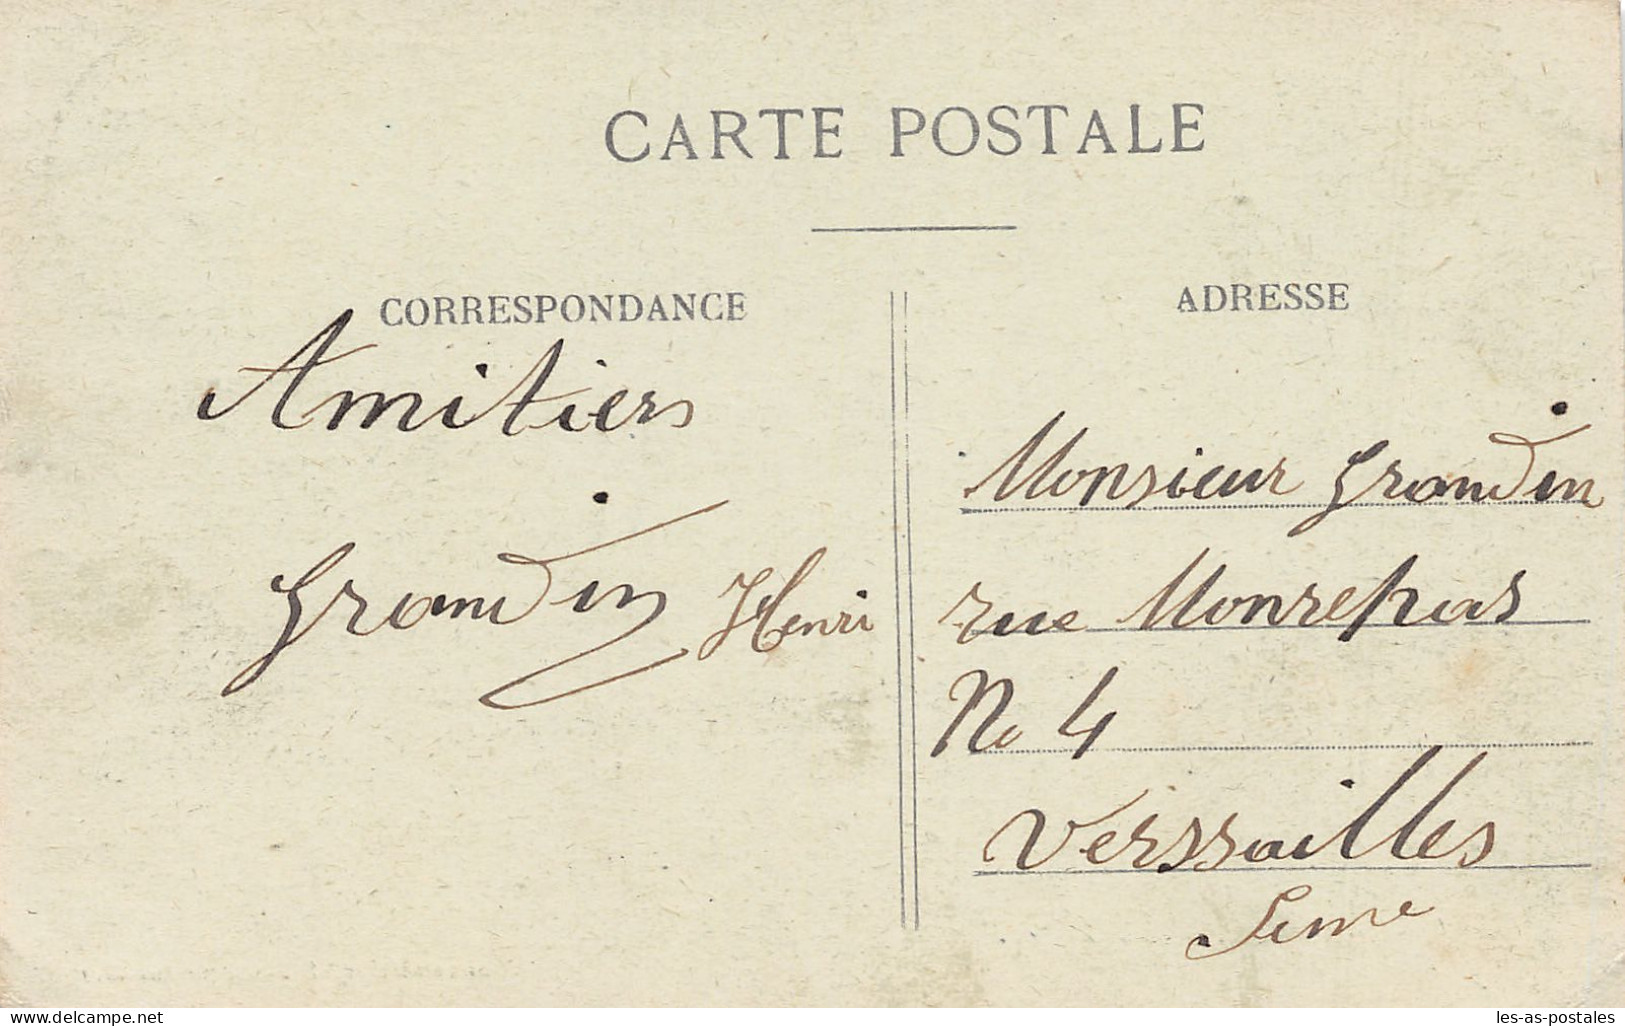 CARTE POSTALE
CORRESPONDANCE
Amitiers
Grandin Henri
ADRESSE
Monsieur Grandin
rue Monrepas
No 4
Verssailles
Seine
www.delcampe.net
les-as-postales